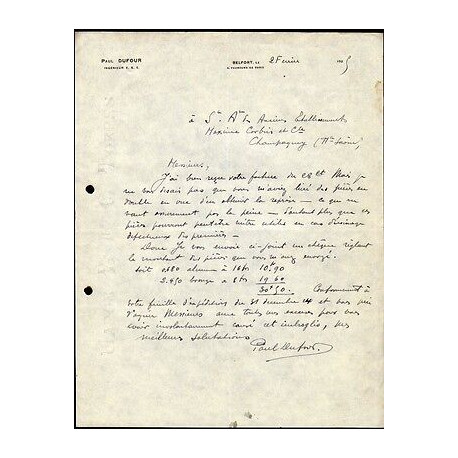 PAUL DUFOUR
BELFORT, LE 2 Février 19
INGÉNIEUR E.
FAUBOURG DE
à Sté Ame des Anciens Etablissements
Maxime et Cie
Champagney (Hte Saône)
Messieurs,
J'ai bien reçu votre facture du ct Mais je
ne pas que vous m'aviez des pièces en
double en vue d'en la reprise — ce qui ne
vaut pas la peine — d'autant plus que ces
pièces pourront peut être être utiles en cas d'usinage
défectueux des premières —
Donc Je vous envoie ci-joint un chèque réglant
le montant des pièces que vous m'avez envoyé.
soit 0.680 à 16 frs 10.90
2.450 bronze à 8 frs 19.60
30.50. Conformément à
votre feuille d'expédition du 31 décembre 14 et vous prie
d'agréer Messieurs avec toutes mes excuses pour vous
avoir involontairement causé cet imbroglio, mes
meilleures salutations
Paul Dufour.